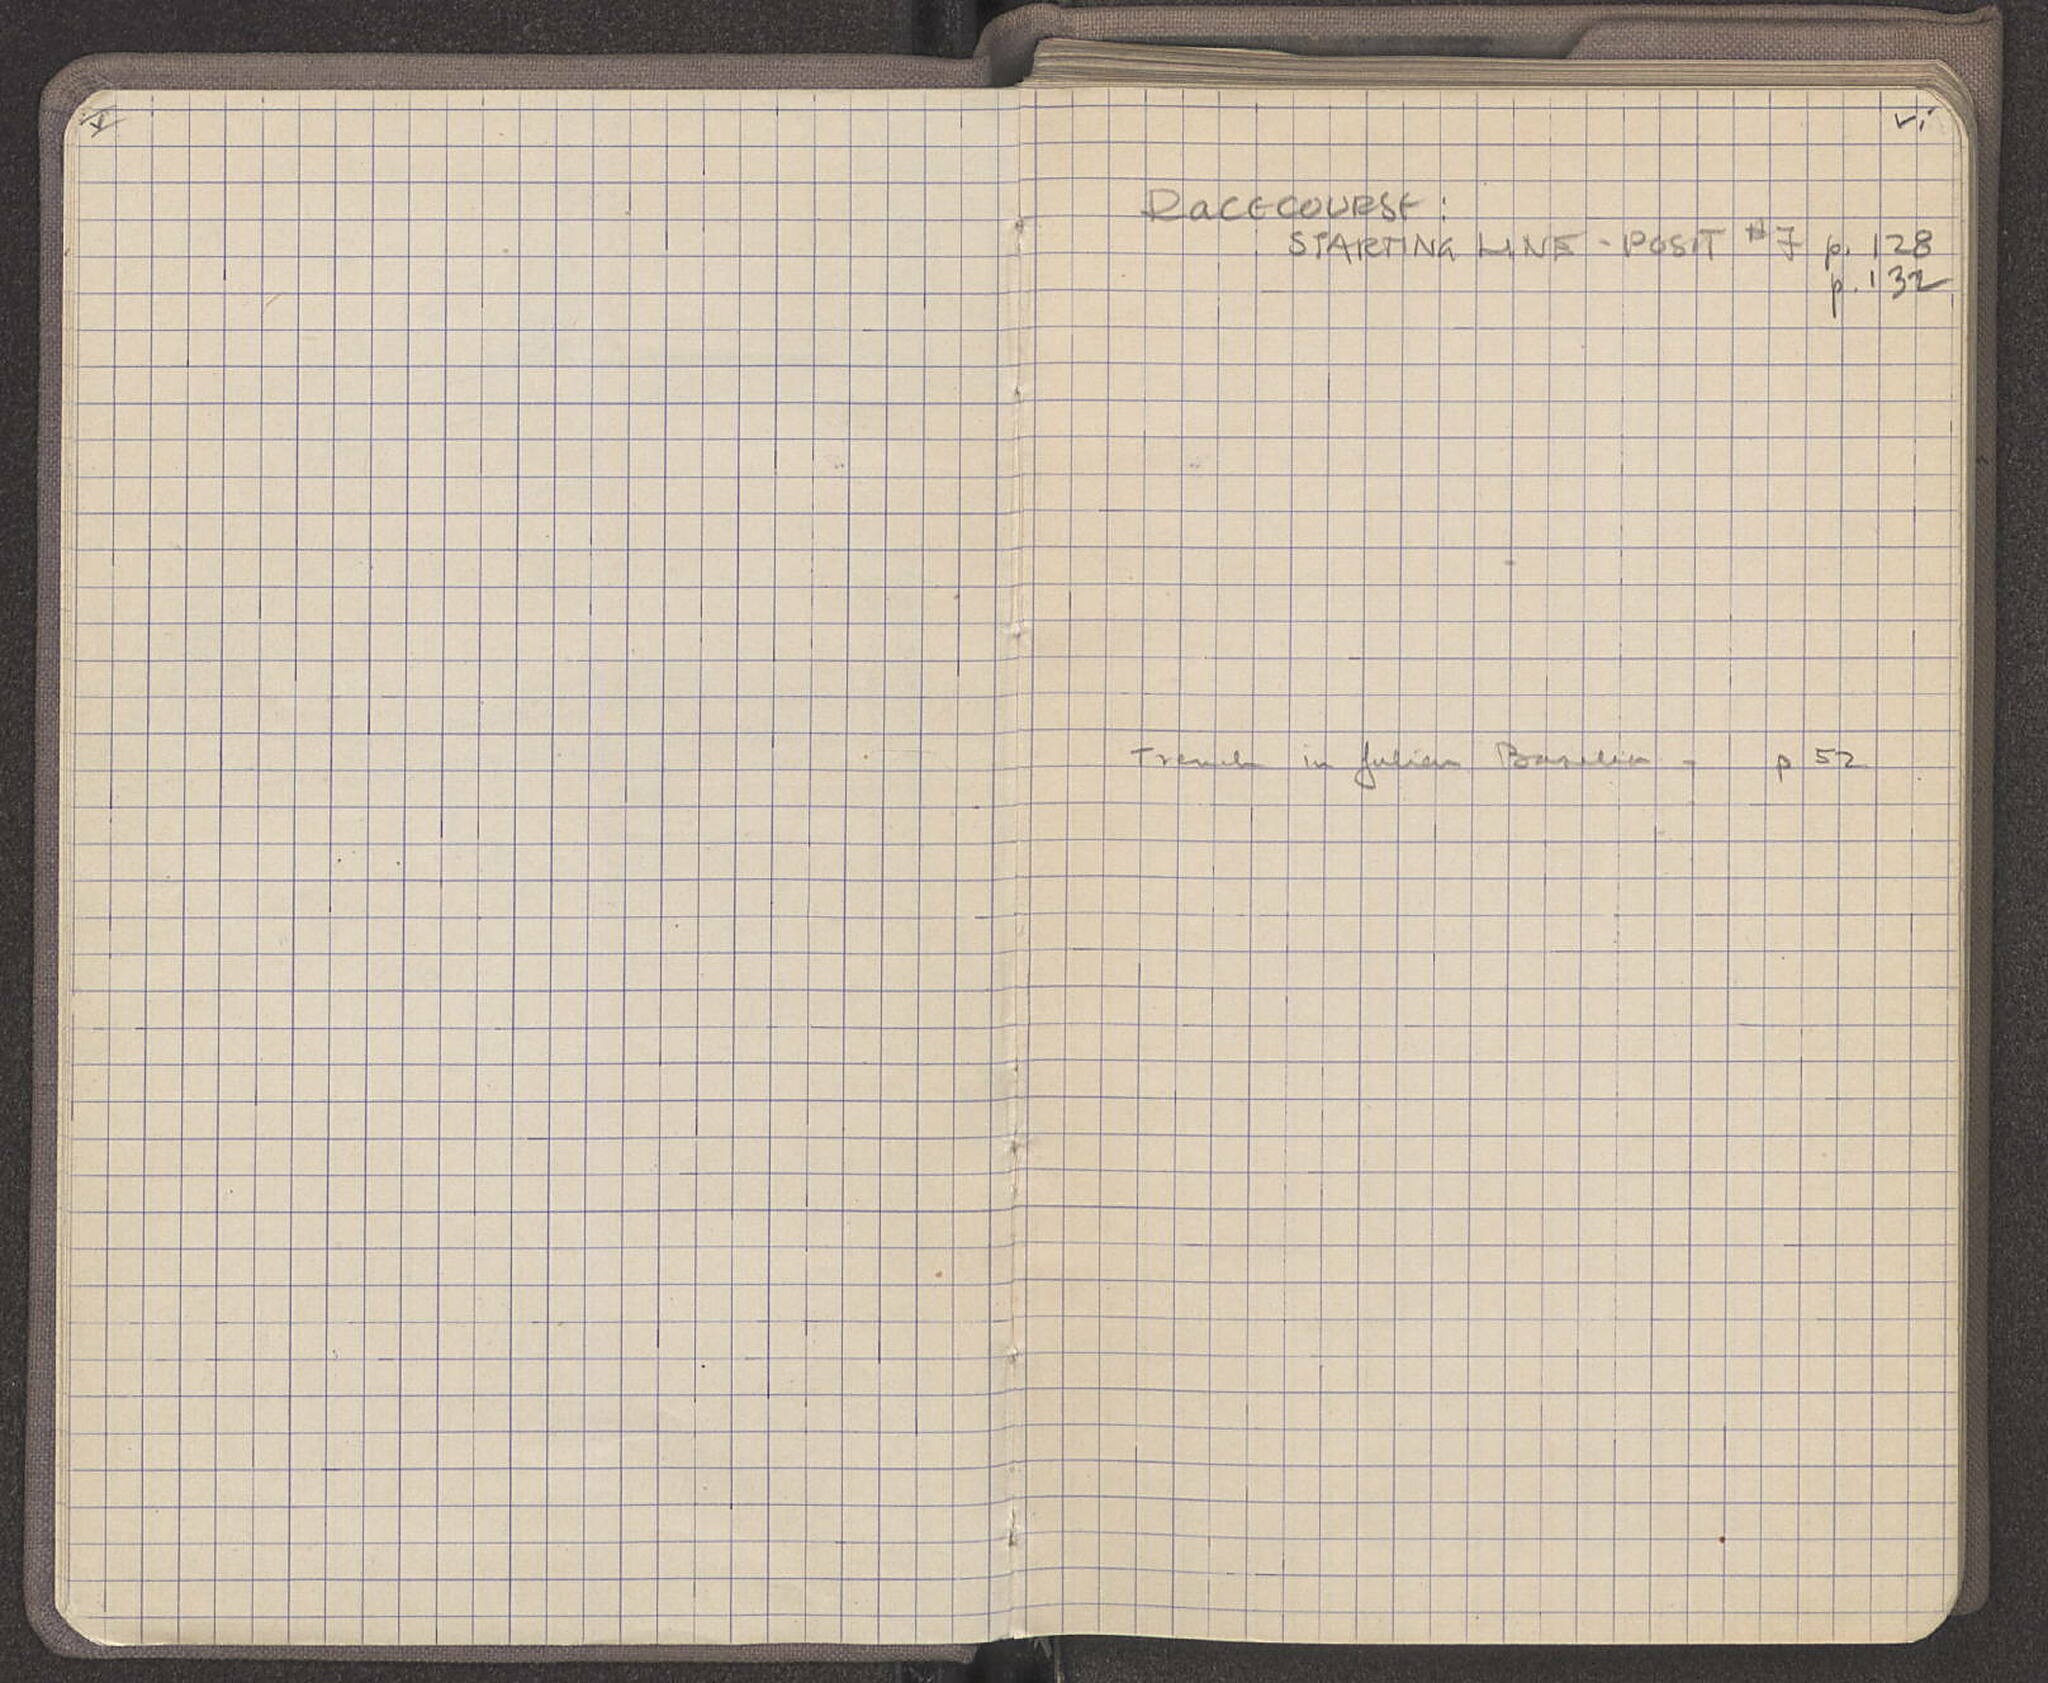 v
vi
RACECOURSE:
STARTING LINE - POSIT #7 p. 128
p. 132
Trench in Julian Basilica - p 52